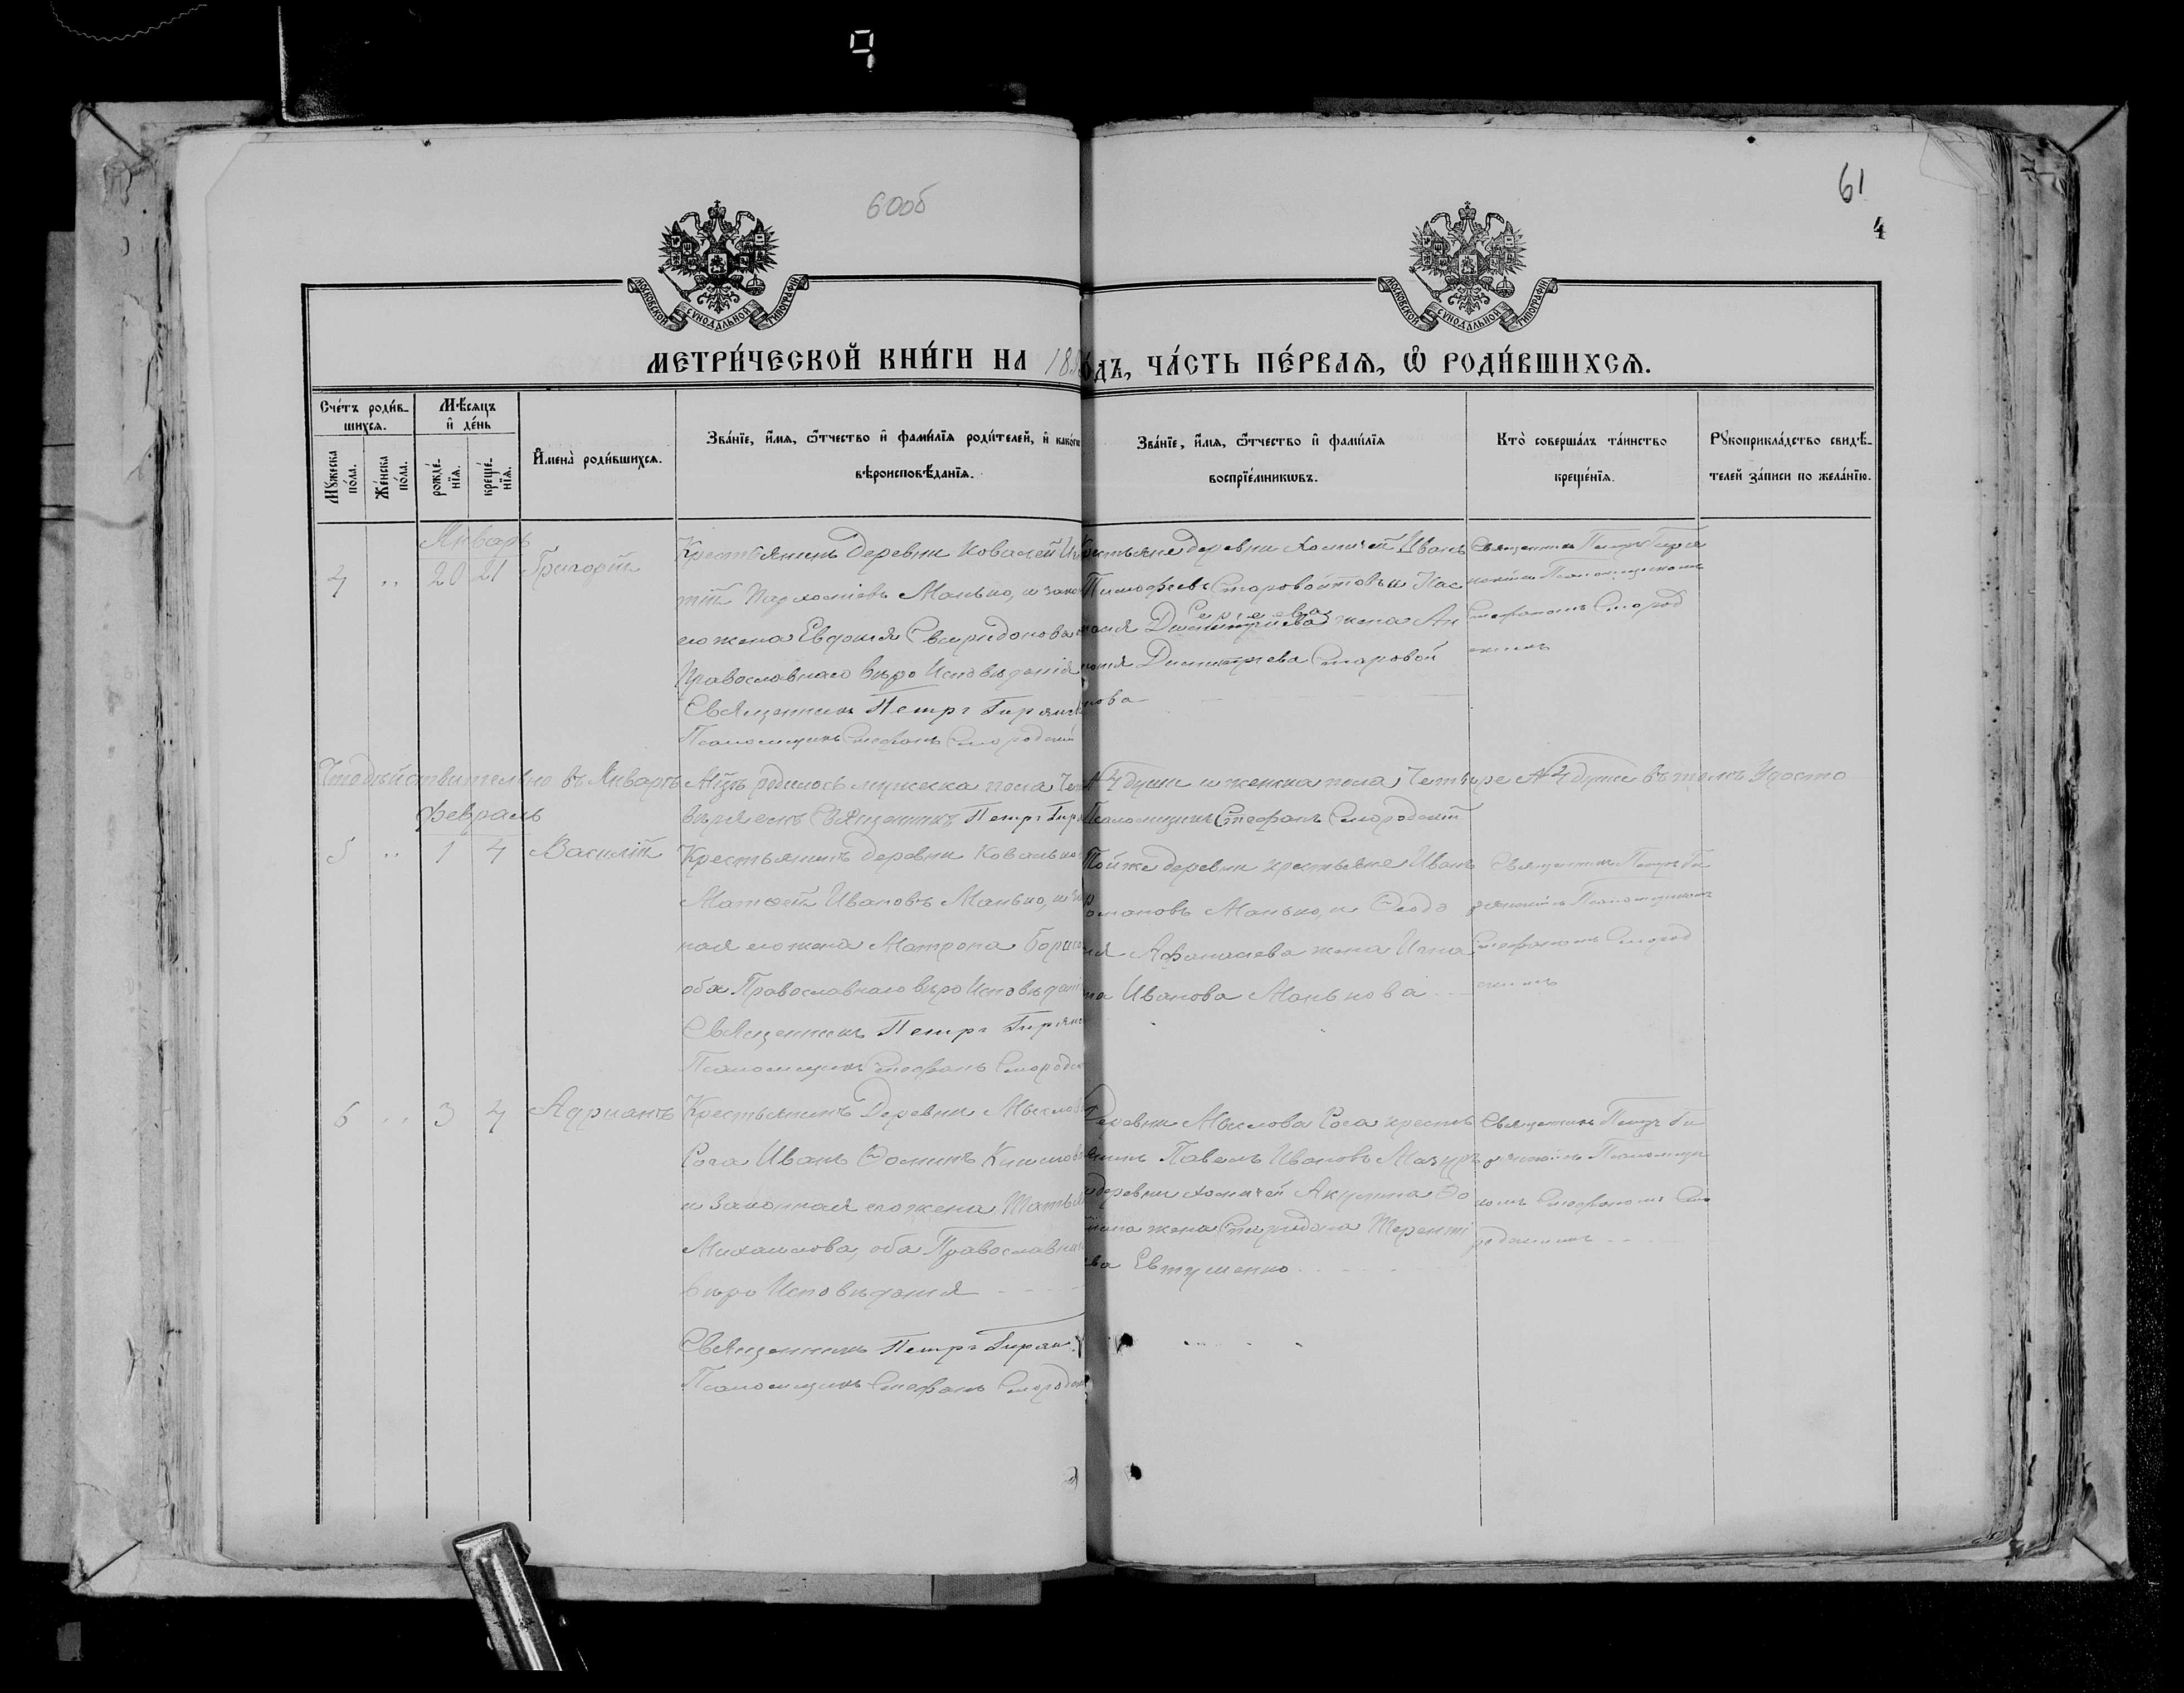 60об
61
4
МОСКОВСКОЙ СУНОДАЛЬНОЙ ТИПОГРАФІИ
МОСКОВСКОЙ СУНОДАЛЬНОЙ ТИПОГРАФІИ
МЕТРИ́ЧЕСКОЙ КНИ́ГИ НА 188
ОДЪ, ЧА́СТЬ ПЕ́РВАѦ, Ѡ РОДИ́ВШИХСѦ.
Сче́тъ роди́в-
шихсѧ.
Мꙋ́жеска по́ла.
Же́нска по́ла.
Мѣ́сѧцъ и де́нь
рожде́-нїѧ.
креще́-нїѧ.
И҆мена̀ роди́вшихсѧ.
Зва́нїе, и҆́мѧ, ѻ҆́тчество и҆ фами́лїѧ роди́телей, и҆ како́гѡ
вѣроисповѣ́данїѧ.
Зва́нїе, и҆́мѧ, ѻ҆́тчество и҆ фами́лїѧ
воспрїе́мникѡвъ.
Кто̀ соверша́лъ та́инство
креще́нїѧ.
Рꙋкоприкла́дство свидѣ́-
телей за́писи по жела́нїю.
Январь
4 " 20 21 Григорій
Крестьянинъ деревни Ковалей
тій Пархоміевъ Манько, и зако
его жена Евфимія Свиридонова
Православнаго вѣро Исповѣданія
Священникъ Петръ Гирян
Псаломщикъ Стефанъ Смородскій
естьяне деревни Хомичей Иванъ
Тимофеевъ Старовойтовъ и Нас
Сергеева
Димитріева жена Ан
Димитріева Старовой
това
Священникъ Петръ Гиря
нскій съ Псаломщикомъ
Стефаномъ Смород
скимъ
Что дѣйствительно въ Январѣ Мцѣ родилось мужеска пола Чет № 4 души и женска пола Четыре № 4 души въ томъ Удосто
вѣряемъ Священникъ Петръ Гиря Псаломщикъ Стефанъ Смородскій
Февраль
5 " 1 4 Василій
Крестьянинъ деревни Ковалько
Матѳей Ивановъ Манько, и за
ная его жена Матрона Борисо
оба Православнаго вѣро Исповѣдані
Священникъ Петръ Гирянс
Псаломщикъ Стефанъ Смородс
Той же деревни крестьяне Иванъ
омановъ Манько, и Ѳеодо
ія Афанасіева жена Игна
та Иванова Манькова
Священникъ Петръ Ги
рянскій съ Псаломщикомъ
Стефаномъ Смород
скимъ
6 " 3 4 Адріанъ
Крестьянинъ деревни Мысло
Рога Иванъ Ѳоминъ
и Законная его жена Татья
Михаилова, оба Православна
вѣро Исповѣданія
Священникъ Петръ Гирян
Псаломщикъ Стефанъ Смородск
Деревни Мыслова Рога кресть
янинъ Павелъ Ивановъ Мазуръ
и деревни Хомичей Акулина Ѳо
мина жена Спиридона Теренті
ева Евтушенко
Священникъ Петръ Ги
рянскій съ Псаломщи
комъ Стефаномъ Смо
родскимъ